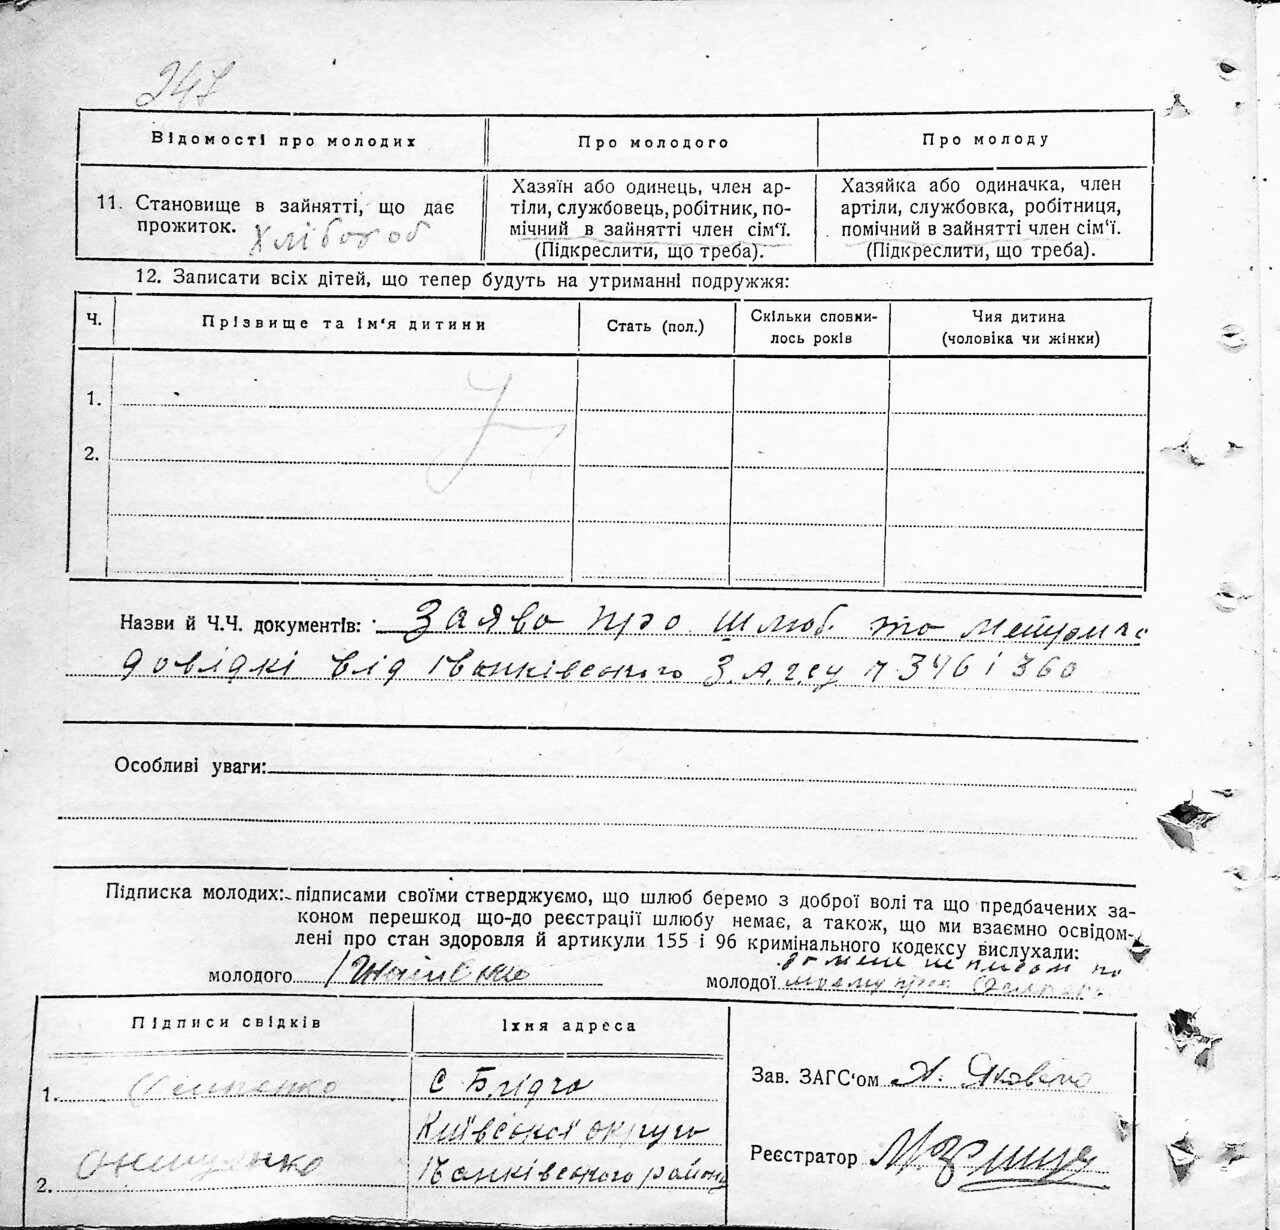 247
Відомості про молодих
Про молодого
Про молоду
11. Становище в зайнятті, що дає
прожиток. Хлібороб
Хазяїн або одинець, член ар-
тіли, службовець, робітник, по-
мічний в зайнятті член сім'ї.
(Підкреслити, що треба).
Хазяйка або одиначка, член
артіли, службовка, робітниця,
помічний в зайнятті член сім'ї.
(Підкреслити, що треба).
12. Записати всіх дітей, що тепер будуть на утриманні подружжя:
Ч.
Прізвище та ім'я дитини
Стать (пол.)
Скільки сповни-
лось років
Чия дитина
(чоловіка чи жінки)
1.
2.
Назви й Ч.Ч. документів: Заява про шлюб та
довідкі від Іванківського З.А.Гсу № 346 і 360
Особливі уваги:
Підписка молодих: підписами своїми стверджуємо, що шлюб беремо з доброї волі та що предбачених за-
коном перешкод що-до реєстрації шлюбу немає, а також, що ми взаємно освідом-
лені про стан здоровля й артикули 155 і 96 кримінального кодексу вислухали:
молодого
молодої
Підписи свідків
Їхня адреса
1.
с Блідча
Київської округи
2. Онищенко
Іванківського району
Зав. ЗАГС'ом
Реєстратор